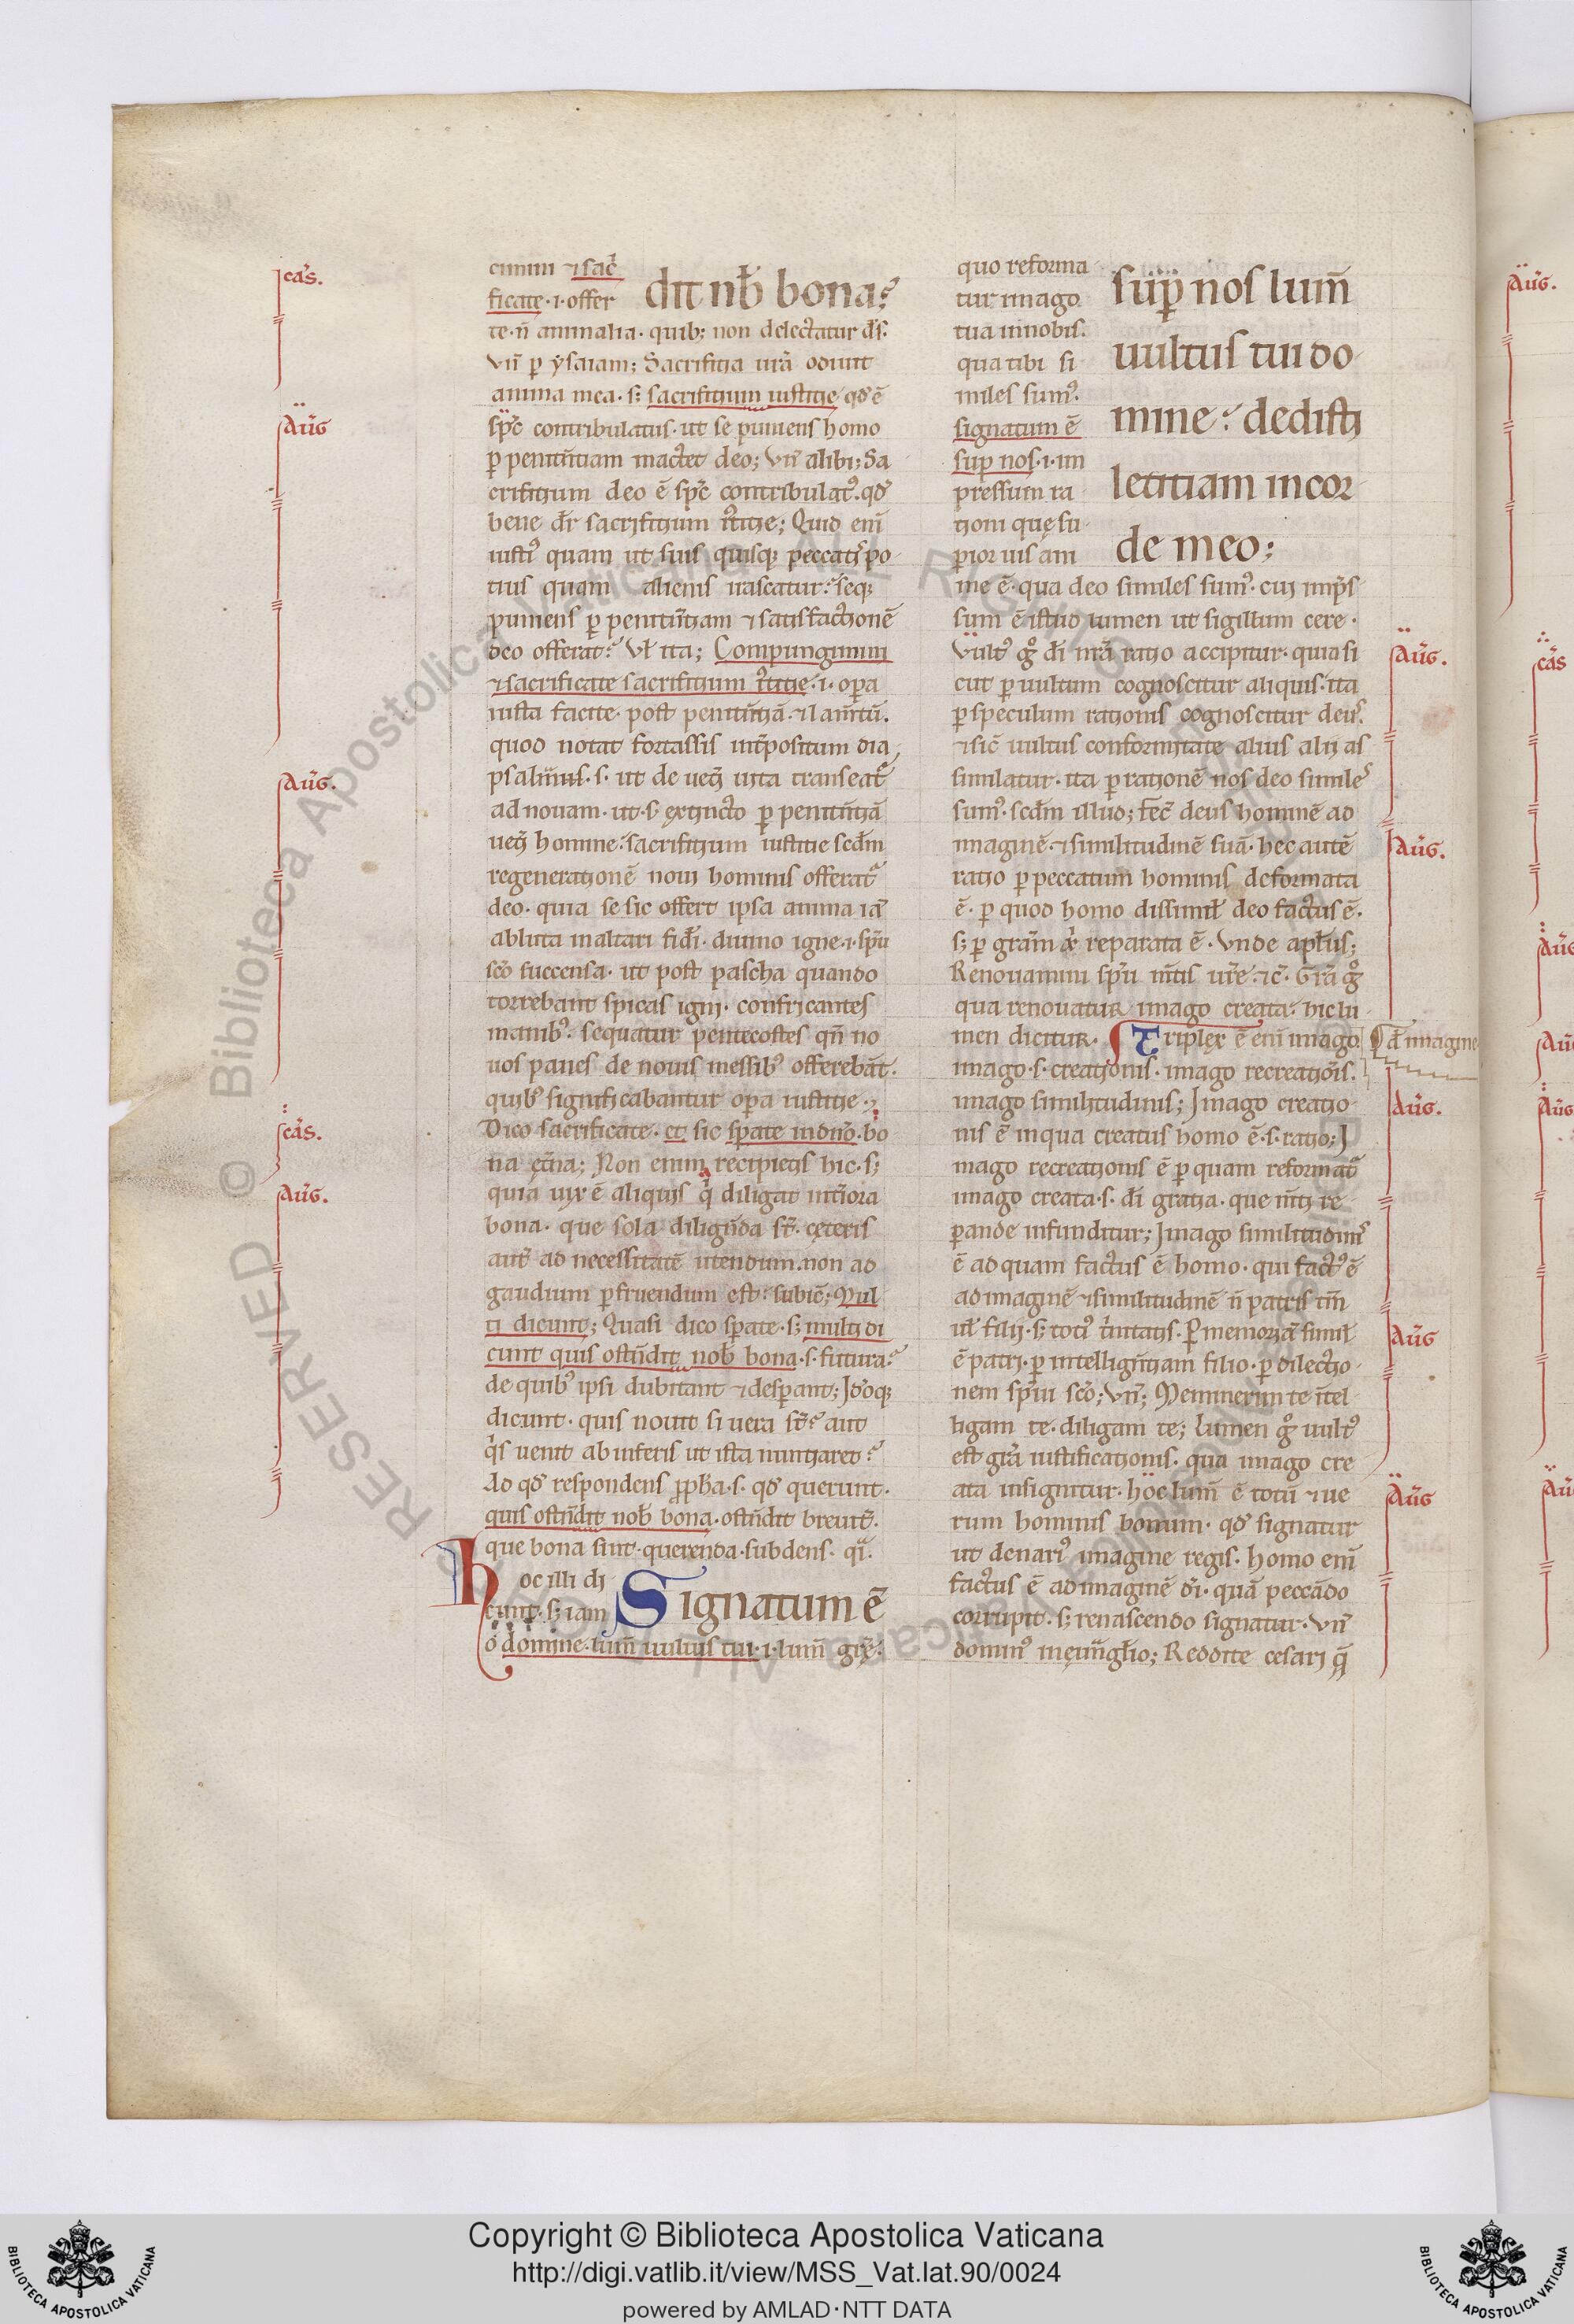 cas.
Aug̃
Aug̃.
cãs.
Aug̃.
cimini ⁊ sac̃
ficate. i. offer
dit nob̃ bona?
te. ñ animalia. quib; non delectatur d̃s.
Vñ p ẏsaiam; Sacrifitia ur̃a odiuit
anima mea. s; sacrifitium iustitie. qđ ẽ
sp̃c contribulatus. ut se puniens homo
p penitẽtiam mactet deo; Vñ alibi; Sa
crifitium deo ẽ sp̃c contribulat᾽. qđ
bene dr̃ sacrifitium ĩtitie; Quid eni̅
iusti᾽ quam ut suis quisq; peccatis po
tius quam alienis irascatur? seq;
puniens p penitñtiam ⁊ satisfactionẽ
deo offerat? Vl̃ ita; Compungimini
⁊ sacrificate sacrifitium ĩtitie. i. opa
iusta facite post penitñtiã. ⁊ lam̃tũ.
quod notat fortassis int̃positum dia
psalm̃. s. ut de uetĩ uita transeat᾽
ad nouam. ut. s. extincto p penitñtiã
uetĩ homine. sacrifitium iustitie scđm
regenerationẽ noui hominis offerat᾽
deo. quia se sic offert ipsa anima iã
abluta in altari fidĩ. diuino igne. i. spũ
sc̃o succensa. ut post pascha quando
torrebant spicas igni. confricantes
manib᾽. sequatur pentecostes qñ no
uos panes de nouis messib᾽ offerebãt.
quib᾽ significabantur opa iustitie.
Dico sacrificate. et sic spate in dño. bo
na et̃na; Non enim recipietis hic. s;
quia uix ẽ aliquis q̃ diligat int̃iora
bona. que sola diligñda st̃. ceteris
aut̃ ad necessitatẽ utendum. non ad
gaudium pfruendum est. subiẽ; Mul
ti dicunt; Quasi dico spate. s; multi di
cunt quis ostñdit nob̃ bona. s. futura?
de quib᾽ ipsi dubitant ⁊ desperant; Idoq;
dicunt. quis nouit si uera st̃? aut
q̃s uenit ab inferis ut ista nuntiaret?
Ad qđ respondens ppħa. s. qđ querunt.
quis ostñdit nob̃ bona. ostñdit breuit̃.
que bona sint. querenda. subdens. q̃i.
Hoc illi di
cunt. s; iam
Signatum ẽ
o domine. lum̃ uultus tui. i. lum̃ gr̃ę.
quo reforma
tur imago
tua in nobis.
qua tibi si
miles sum᾽.
signatum ẽ
sup nos. i. im
pressum ra
tioni quę su
perior uis am
sup nos lum̃
uultus tui do
mine. dedisti
letitiam in cor
de meo;
me ẽ. qua deo similes sum᾽. cui imp̃s
sum ẽ istud lumen ut sigillum cere.
Vult᾽ g̊ dĩ nr̃a ratio accipitur. quia si
cut p uultum cognoscitur aliquis. ita
p speculum rationis cognoscitur deus.
⁊ sic̃ uultus conformitate alius alii as
similatur. ita p rationẽ nos deo simile᾽
sum᾽. scđm illud; fec̃ deus hominẽ ad
imaginẽ. ⁊ similitudinẽ suã. hec autẽ
ratio p peccatum hominis deformata
ẽ. p quod homo dissimil̃ deo factus ẽ.
s; p gram̃ x̃ reparata ẽ. Vnde aplus;
Renouamini spũ m̃tis ur̃e. ⁊c̃. Gr̃a g̊
qua renouatur imago creata. hic lu
men dicitur. Triplex ẽ eni imago.
imago. s. creationis. imago recreatiõis.
imago similitudinis; Imago creatio
nis ẽ in qua creatus homo ẽ. s. ratio; I
mago recreationis ẽ p quam reformat᾽
imago creata. s. dĩ gratia. que m̃ti re
parande infunditur; Imago similitudiñ
ẽ ad quam factus ẽ homo. qui fact᾽ ẽ
ad imaginẽ ⁊ similitudinẽ ñ patris tm̃
ul̃ filii. s; toti᾽ t̃nitatis. P memoriã simil̃
ẽ patri. p intelligñtiam filio. p dilectio
nem spĩui sc̃o; Vñ; Meminerim te ĩtel
ligam te. diligam te; lumen g̊ uult᾽
est gr̃a iustificationis. qua imago cre
ata insignitur. hoc lum̃ ẽ totũ ⁊ ue
rum hominis bonum. qđ signatur
ut denari᾽ imagine regis. homo eni̅
factus ẽ ad imaginẽ dĩ. quã peccãdo
corrupit. s; renascendo signatur. Vñ
domin᾽ in euũglio; Reddite cesari q̃
Aug̃.
Aug̃.
Aug̃.
Aug̃
Aug̃
Aug̃.
cãs
Copyright © Biblioteca Apostolica Vaticana
http://digi.vatlib.it/view/MSS_Vat.lat.90/0024
powered by AMLAD·NTT DATA
BIBLIOTECA APOSTOLICA VATICANA
BIBLIOTECA APOSTOLICA VATICANA